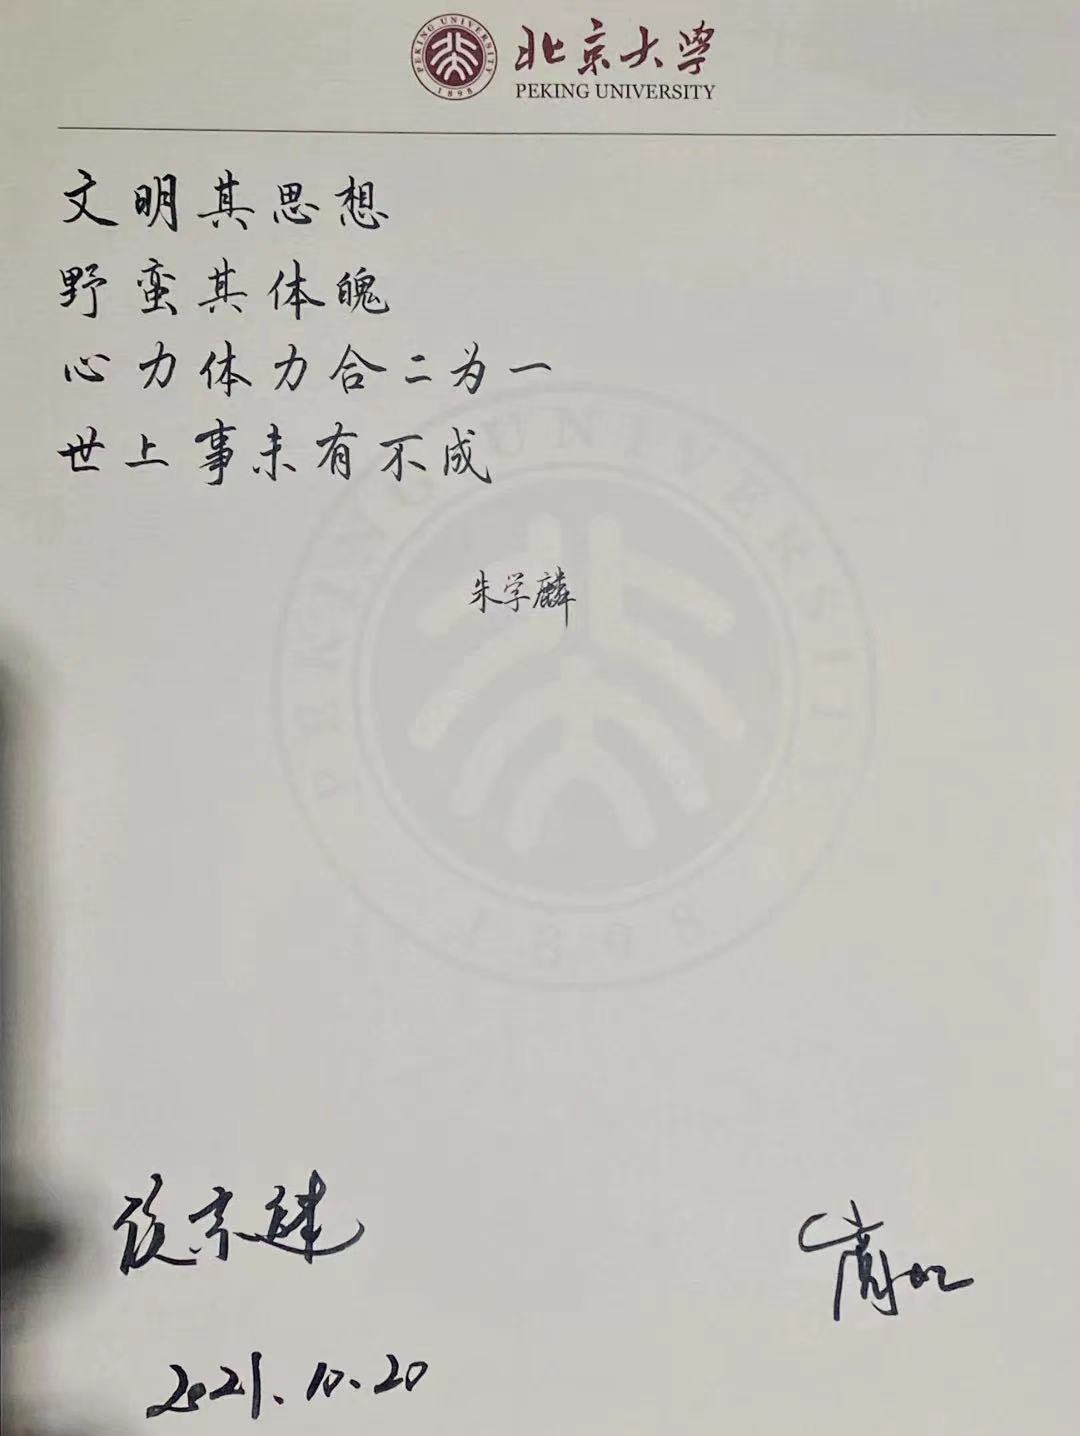 北京大学
PEKING UNIVERSITY
PEKING UNIVERSITY
1898
文明其思想
野蛮其体魄
心力体力合二为一
世上事未有不成
朱学麟
PEKING UNIVERSITY
1898
2021.10.20